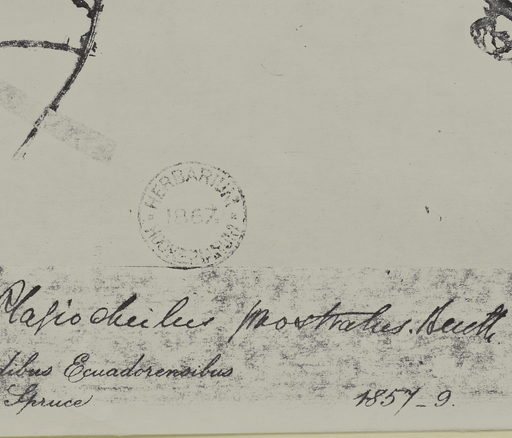 HERBARIUM
1867
Plagiocheilus prostratus. Benth
dibus Ecuadorensibus
Spruce 1857-9.